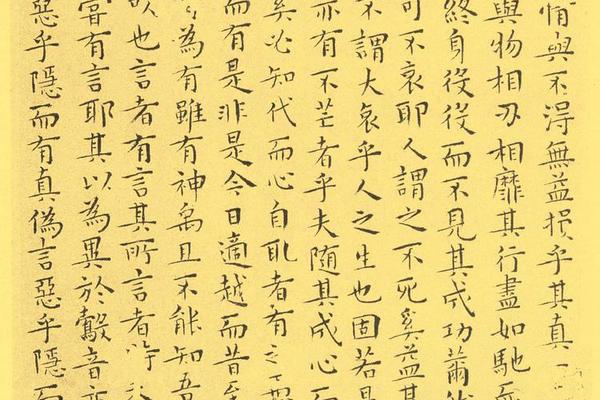 情與不得無益損乎其真一
與物相刃相靡其行盡如馳而
終身役役而不見其成功薾
可不哀耶人謂之不死奚益其
不謂大哀乎人之生也固若是
亦有不芒者乎夫随其成心而
奚必知代而心自取者有之
而有是非是今日適越而昔至
為有雖有神禹且不能知吾
吹也言者有言其所言者特
嘗有言耶其以為異於鷇音亦
惡乎隱而有真偽言惡乎隱而